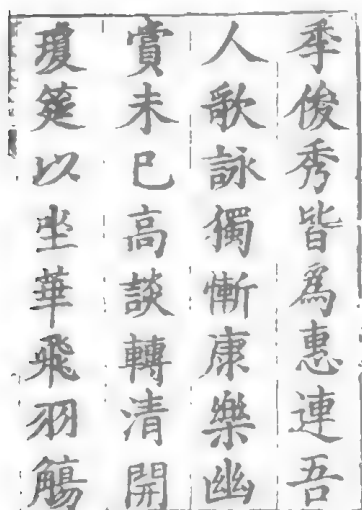 季俊秀皆為惠連吾
人歌詠獨慚康樂幽
賞未已高談轉清開
瓊筵以坐華飛羽觴